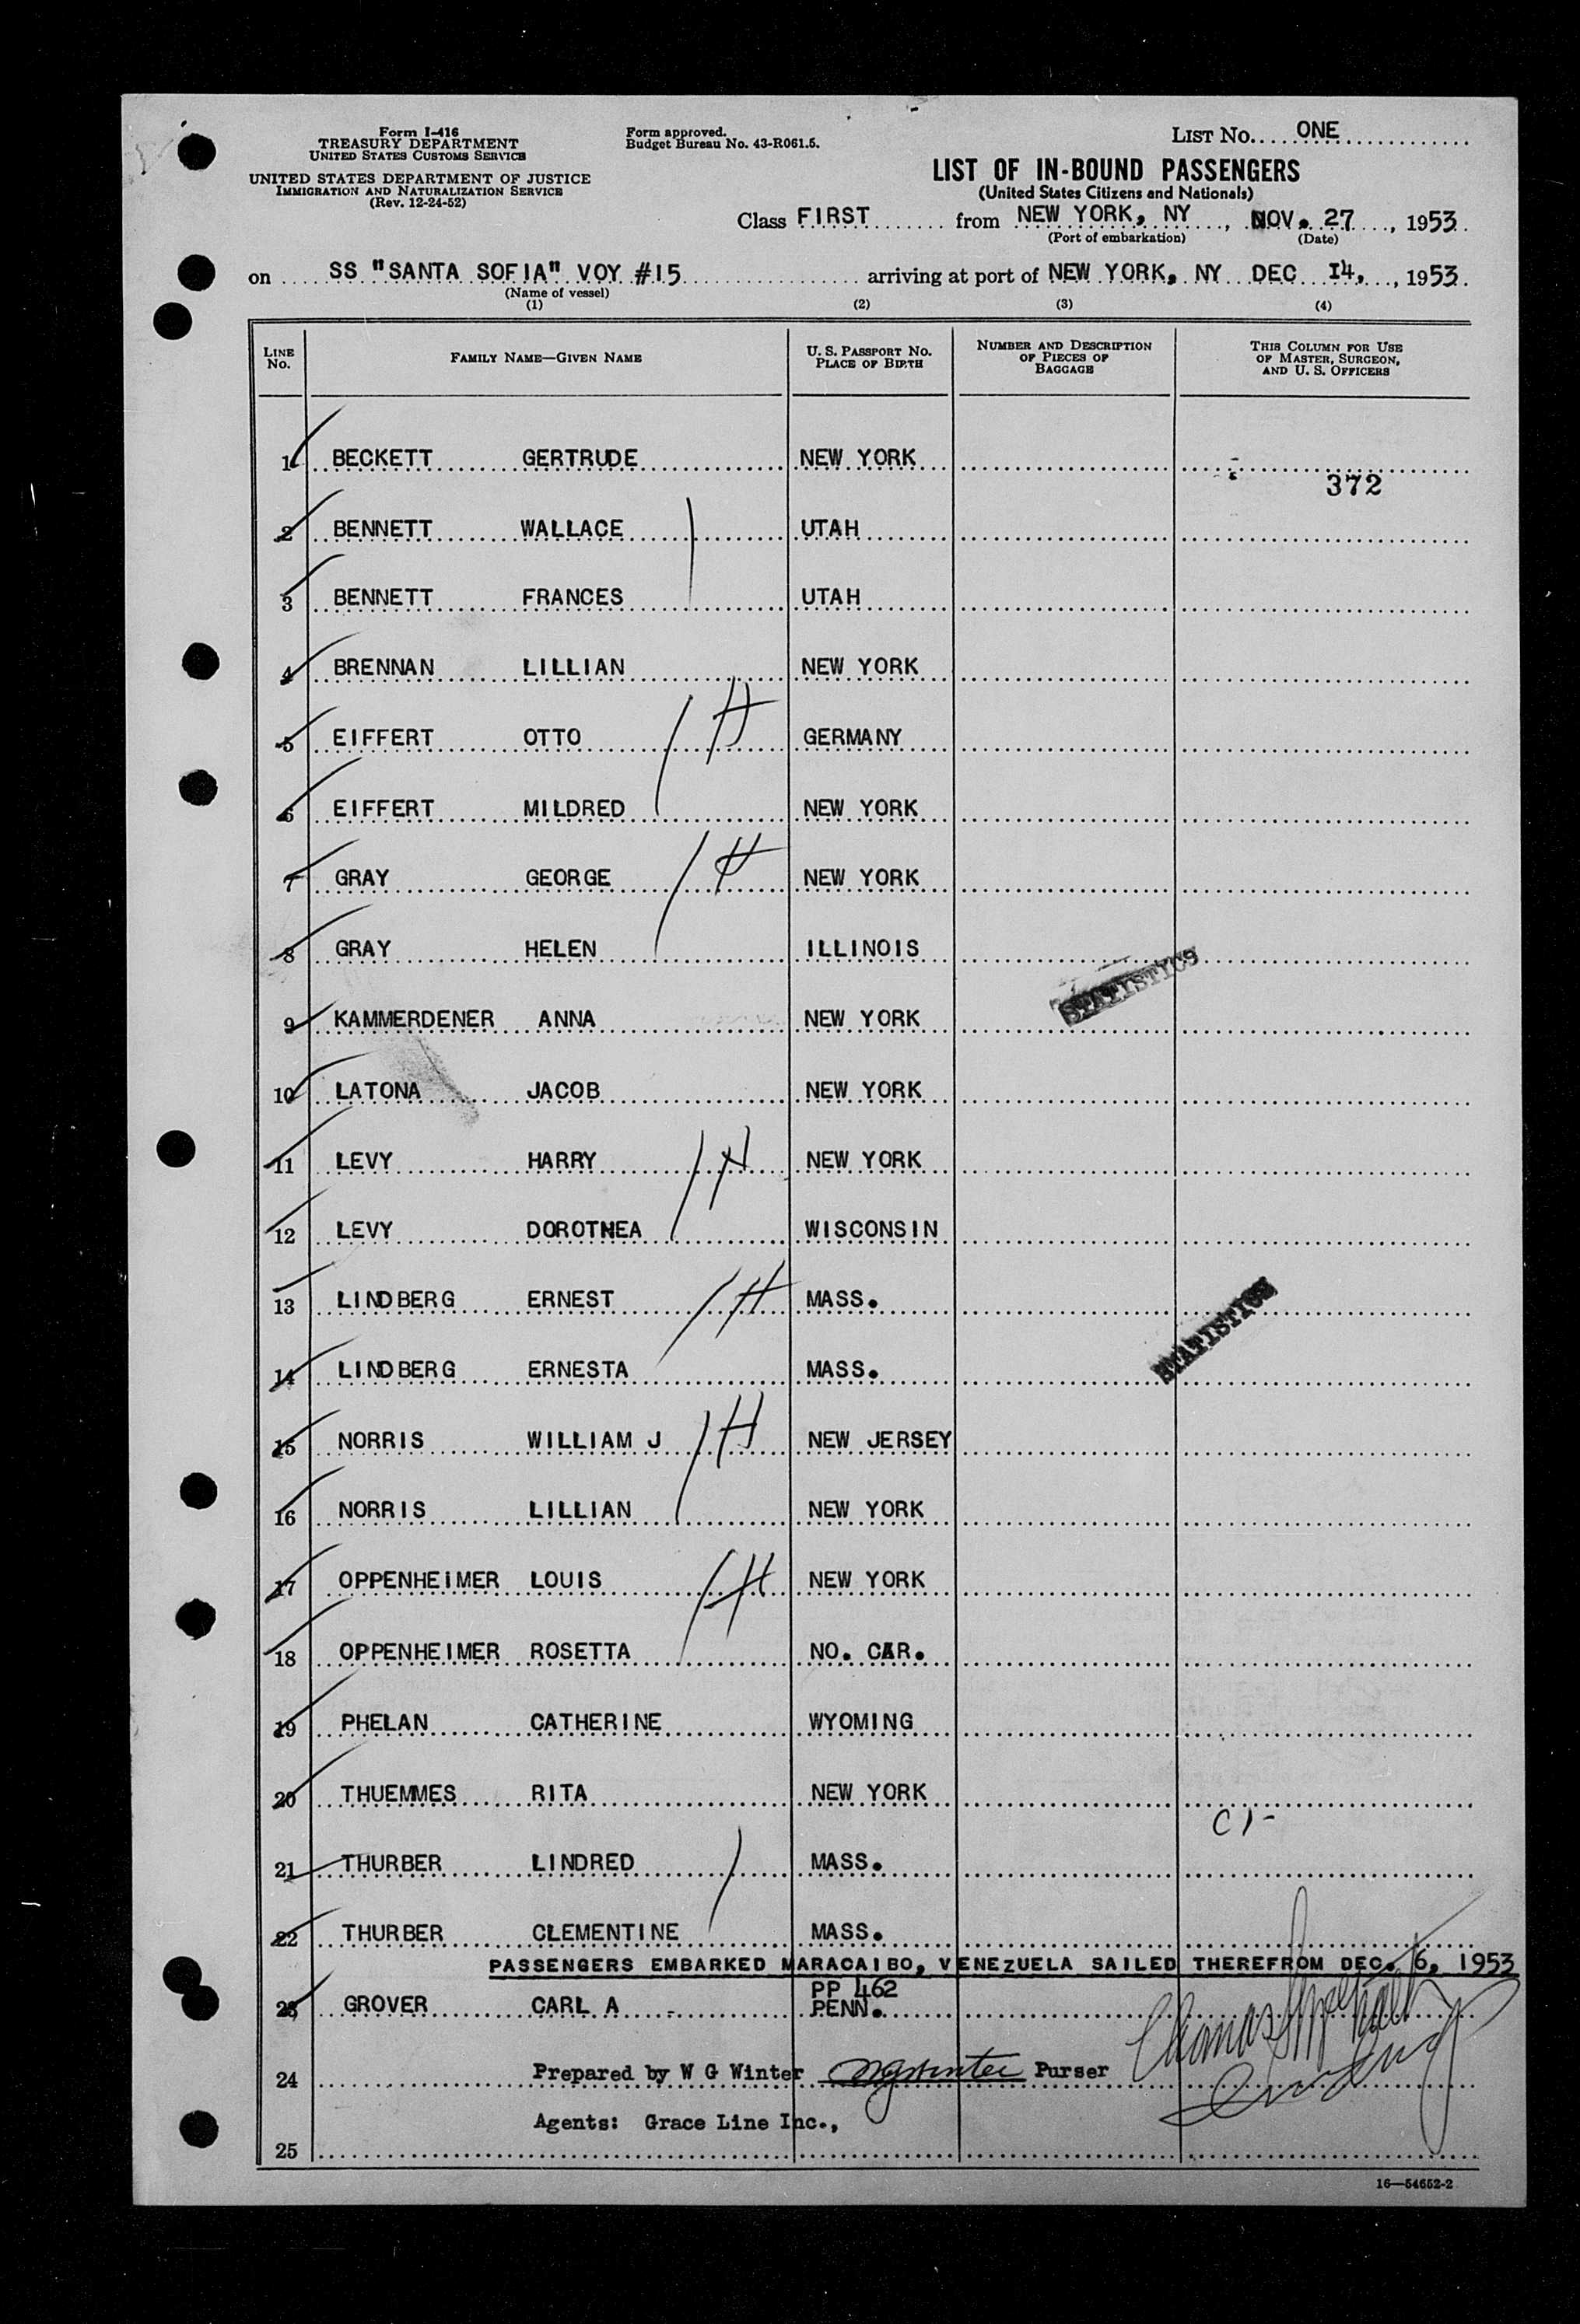 Form I-416
TREASURY DEPARTMENT
UNITED STATES CUSTOMS SERVICE
UNITED STATES DEPARTMENT OF JUSTICE
IMMIGRATION AND NATURALIZATION SERVICE
(Rev. 12-24-52)
Form approved.
Budget Bureau No. 43-R061.5.
LIST No. ONE
LIST OF IN-BOUND PASSENGERS
(United States Citizens and Nationals)
Class FIRST from NEW YORK, NY, NOV. 27, 1953.
(Port of embarkation) (Date)
on SS "SANTA SOFIA" VOY #15 arriving at port of NEW YORK, NY DEC 14, 1953.
(Name of vessel)
(1) (2) (3) (4)
LINE No. FAMILY NAME—GIVEN NAME U. S. PASSPORT No. PLACE OF BIRTH NUMBER AND DESCRIPTION OF PIECES OF BAGGAGE THIS COLUMN FOR USE OF MASTER, SURGEON, AND U. S. OFFICERS
1 BECKETT GERTRUDE NEW YORK
372
2 BENNETT WALLACE UTAH
3 BENNETT FRANCES UTAH
4 BRENNAN LILLIAN NEW YORK
5 EIFFERT OTTO H GERMANY
6 EIFFERT MILDRED NEW YORK
7 GRAY GEORGE H NEW YORK
8 GRAY HELEN ILLINOIS
STATISTICS
9 KAMMERDENER ANNA NEW YORK
10 LATONA JACOB NEW YORK
11 LEVY HARRY H NEW YORK
12 LEVY DOROTNEA WISCONSIN
13 LINDBERG ERNEST H MASS.
STATISTICS
14 LINDBERG ERNESTA MASS.
15 NORRIS WILLIAM J H NEW JERSEY
16 NORRIS LILLIAN NEW YORK
17 OPPENHEIMER LOUIS H NEW YORK
18 OPPENHEIMER ROSETTA NO. CAR.
19 PHELAN CATHERINE WYOMING
20 THUEMMES RITA NEW YORK
21 THURBER LINDRED MASS.
22 THURBER CLEMENTINE MASS.
PASSENGERS EMBARKED MARACAIBO, VENEZUELA SAILED THEREFROM DEC. 6, 1953
PP 462
23 GROVER CARL A PENN.
24 Prepared by W G Winter WGWinter Purser
Agents: Grace Line Inc.,
25
16—54652-2